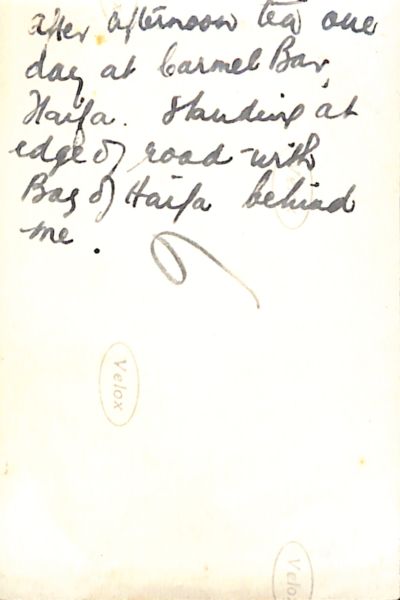 after afternoon tea one
day at Carmel Bar,
Haifa. Standing at
edge of road with
Bay of Haifa behind
me.
Velox
Velox